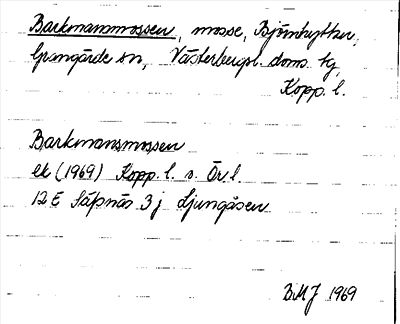 Barkmansmossen, mosse, Björnhyttan,
Grangärde sn, Västerbergsl. doms. tg,
Kopp. l.
Barkmansmossen
ek (1969) Kopp. l. s. Ör l.
12 E Säfsnäs 3 j Ljungåsen
BMJ 1969